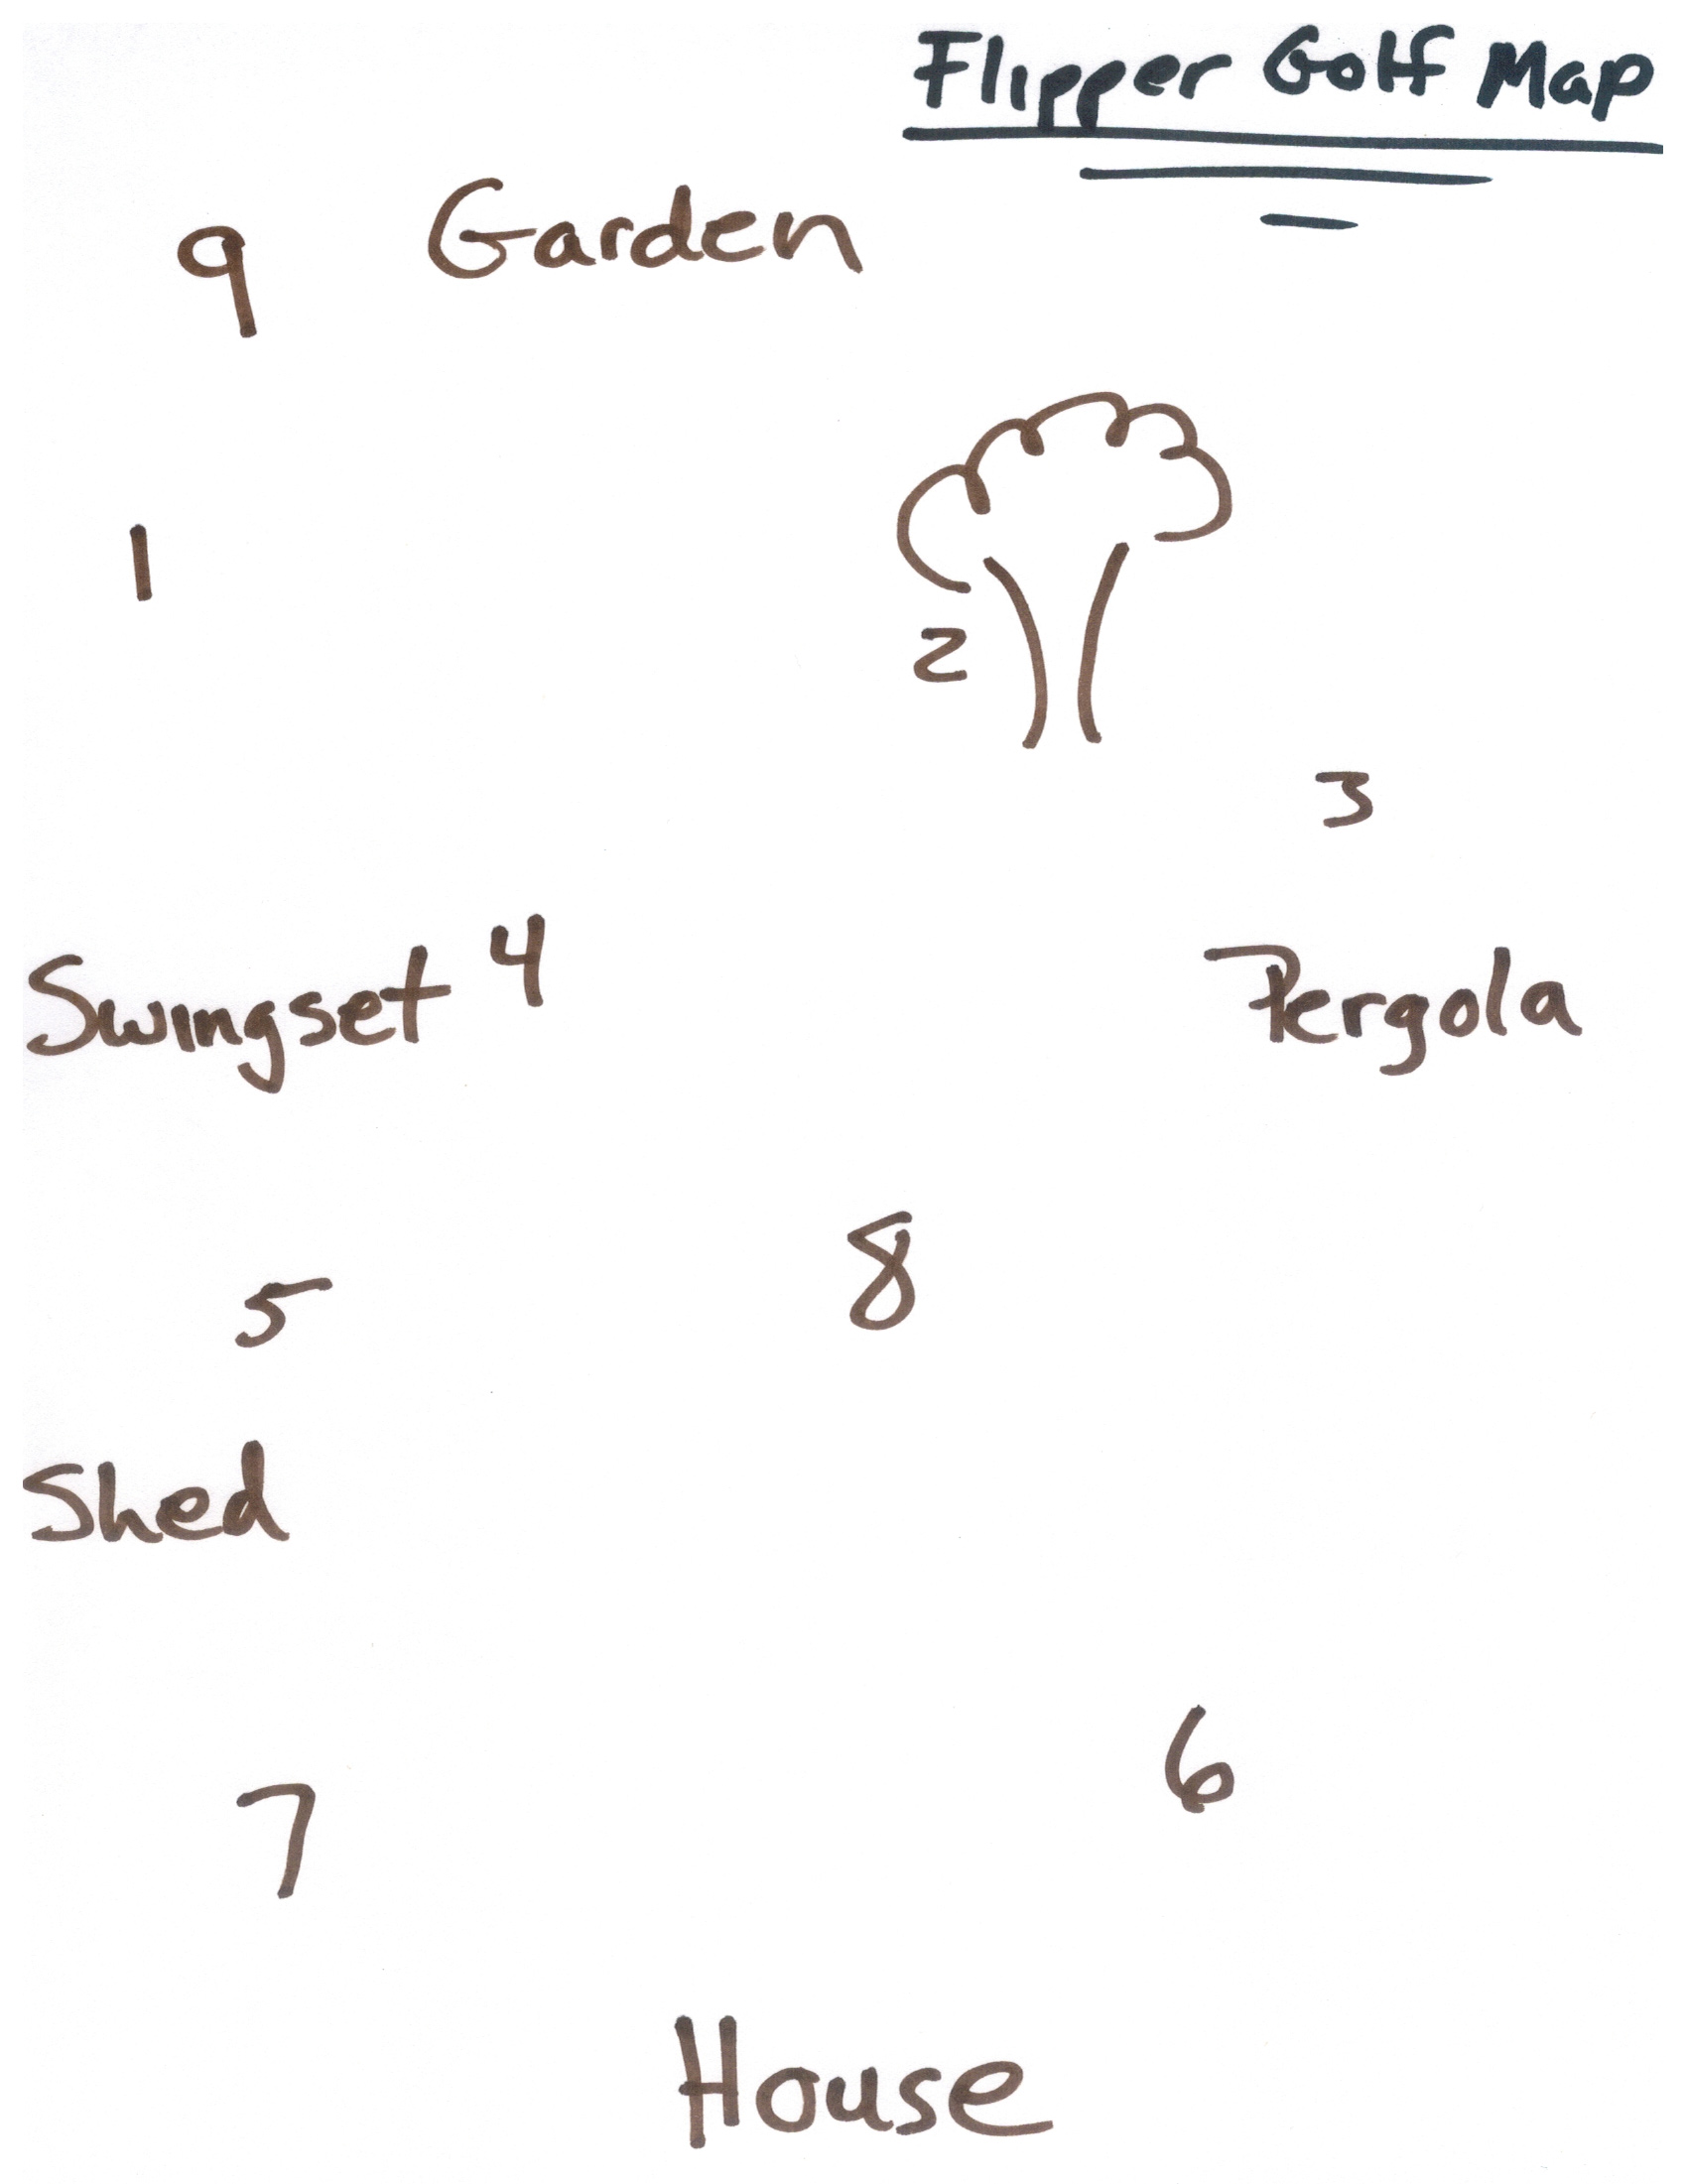 Flipper Golf Map
9 Garden
1
2
3
Swingset 4
Pergola
5
8
Shed
6
7
House